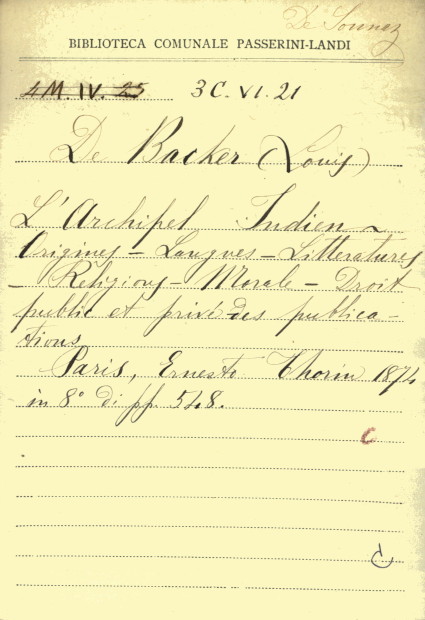 De Sonnaz
BIBLIOTECA COMUNALE PASSERINI-LANDI
4M. IV. 25 3 C. VI. 21
De Backer (Louis)
L'Archipel Indien ~
Origines – Langues – Litteratures
– Religions – Morale – Droit
public et privé des publica-
tions
Paris, Ernesto Thorin 1874
in 8° di pp. 548.
C